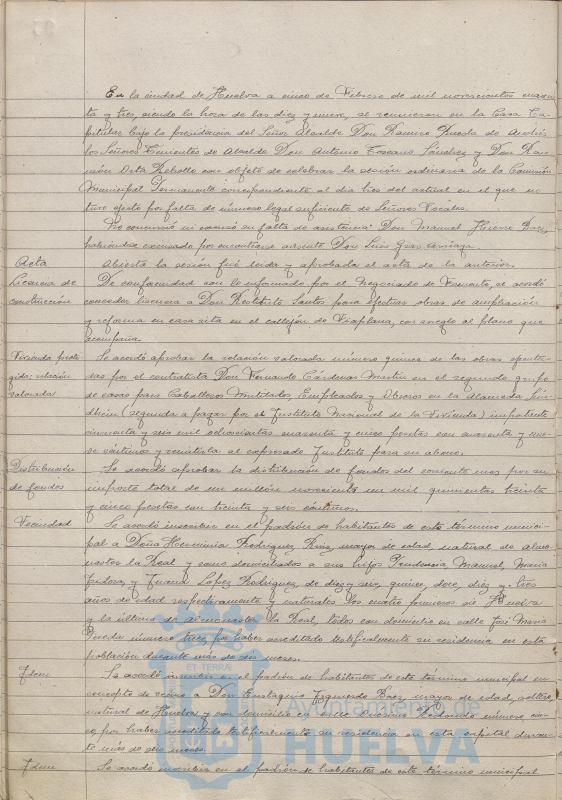 En la ciudad de Huelva a cinco de Febrero de mil novecientos cuaren-
ta y tres, siendo la hora de las diez y nueve, se reunieron en la Casa Ca-
pitular bajo la presidencia del Señor Alcalde Don Ramiro
los Señores Tenientes de Alcalde Don Antonio Toscano Sánchez y Don Ra-
món Orta Rebollo con objeto de celebrar la sesión ordinaria de la Comisión
Municipal Permanente correspondiente al día tres del actual en el que no
tuvo efecto por falta de número legal suficiente de Señores Vocales.
No concurrió ni excusó su falta de asistencia Don Manuel Báez,
habiéndose excusado por encontrarse ausente Don Luis
Acta
Abierta la sesión fué leída y aprobada el acta de la anterior.
Licencia de
construcción
De conformidad con lo informado por el Negociado de Fomento, se acordó
conceder licencia a Don Restituto Santos para efectuar obras de ampliación
y reforma en casa sita en el callejón de Viaplana, con arreglo al plano que
acompaña.
Vivienda prote-
gida: relación
valorada
Se acordó aprobar la relación valorada número quince de las obras ejecuta-
das por el contratista Don Fernando Cárdenas Martín en el segundo grupo
de casas para Caballeros Mutilados, Empleados y Obreros en la Alameda Sun-
dheim (segunda a pagar por el Instituto Nacional de la Vivienda) importante
cincuenta y seis mil ochocientas cuarenta y cinco pesetas con cuarenta y nue-
ve céntimos y remitirla al expresado Instituto para su abono.
Distribución
de fondos
Se acordó aprobar la distribución de fondos del corriente mes por su
importe total de un millón novecientas un mil quinientas treinta
y cinco pesetas con treinta y seis céntimos.
Vecindad
Se acordó inscribir en el padrón de habitantes de este término munici-
pal a Doña Herminia Rodríguez Ruiz, mayor de edad, natural de Almo-
naster la Real y como domiciliados a sus hijos Prudencia, Manuel, María
Isidora, y Juana López Rodríguez, de diez y seis, quince, doce, diez y tres
años de edad respectivamente y naturales los cuatro primeros de Huelva
y la última de Almonaster la Real, todos con domicilio en calle José María
Pereda número trece por haber acreditado testificalmente su residencia en esta
población durante más de dos meses.
Idem
Se acordó inscribir en el padrón de habitantes de este término municipal en
concepto de vecino a Don Eustaquio Izquierdo Báez, mayor de edad, soltero,
natural de Huelva y con domicilio en calle Onésimo Redondo número
por haber acreditado testificalmente su residencia en esta capital duran-
te más de seis meses.
Idem
Se acordó inscribir en el padrón de habitantes de este término municipal
ET TERRÆ
Ayuntamiento de
HUELVA